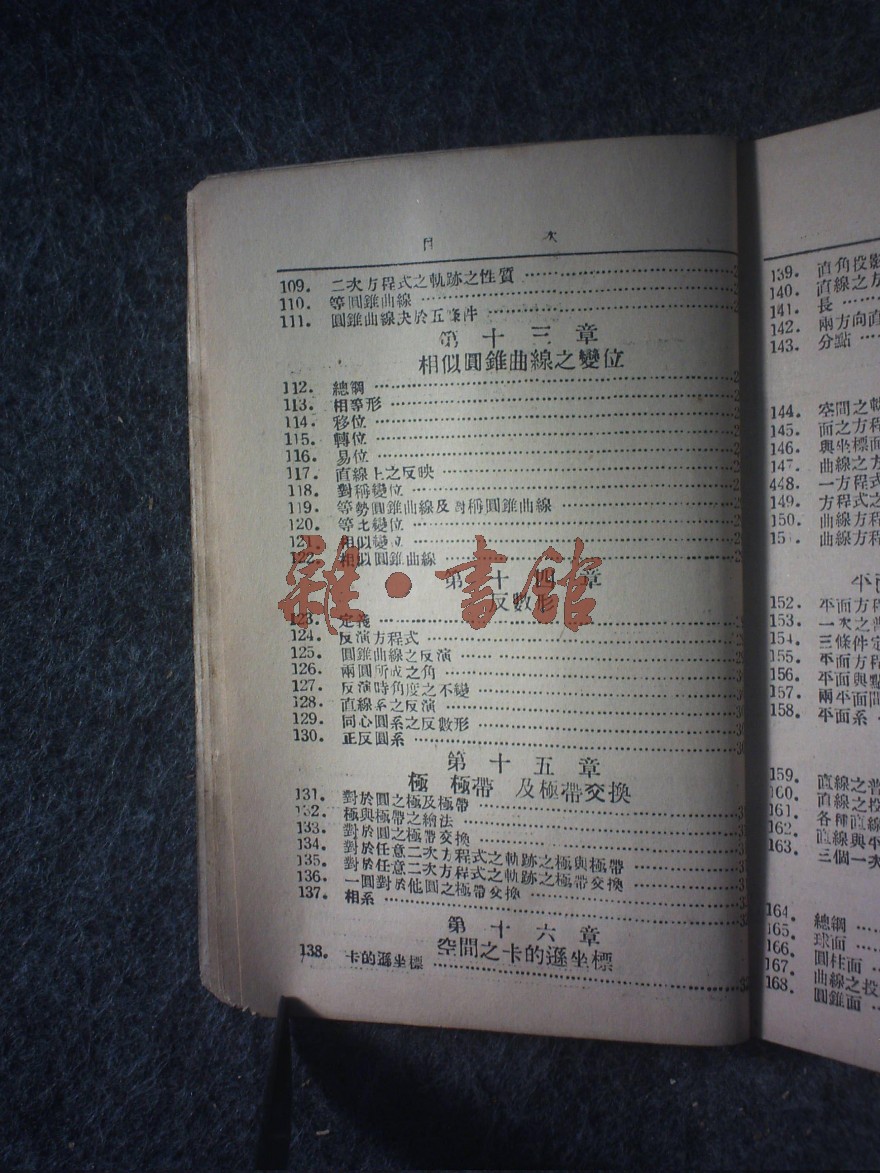 目 次
109. 二次方程式之軌跡之性質
110. 等圓錐曲線
111. 圓錐曲線決於五條件
第十三章
相似圓錐曲線之變位
112. 總綱
113. 相等形
114. 移位
115. 轉位
116. 易位
117. 直線上之反映
118. 對稱變位
119. 等勢圓錐曲線及對稱圓錐曲線
120. 等比變位
121. 相似變位
122. 相似圓錐曲線
第十四章
反數形
123. 定義
124. 反演方程式
125. 圓錐曲線之反演
126. 兩圓所成之角
127. 反演時角度之不變
128. 直線系之反演
129. 同心圓系之反數形
130. 正反圓系
第十五章
極 極帶 及極帶交換
131. 對於圓之極及極帶
132. 極與極帶之繪法
133. 對於圓之極帶交換
134. 對於任意二次方程式之軌跡之極與極帶
135. 對於任意二次方程式之軌跡之極帶交換
136. 一圓對於他圓之極帶交換
137. 相系
第十六章
空間之卡的遜坐標
138. 卡的遜坐標
雜·書館
139. 直角投影
140. 直線之方
141. 長
142. 兩方向直
143. 分點
144. 空間之軌
145. 面之方程
146. 與坐標面
147. 曲線之方
448. 一方程式
149. 方程式之
150. 曲線方程
15 . 曲線方程
平面
152. 平面方程
153. 一次之普
154. 三條件定
155. 平面方程
156. 平面與點
157. 兩平面間
158. 平面系
159. 直線之普
160. 直線之投
161. 各種直線
162. 直線與平
163. 三個一次
164. 總綱
165. 球面
166. 圓柱面
167. 曲線之投
168. 圓錐面